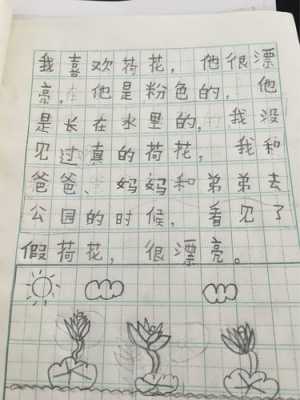 我喜欢荷花，他很漂
亮，他是粉色的，他
是长在水里的，我没
见过真的荷花，我和
爸爸、妈妈和弟弟去
公园的时候，看见了
假荷花，很漂亮。